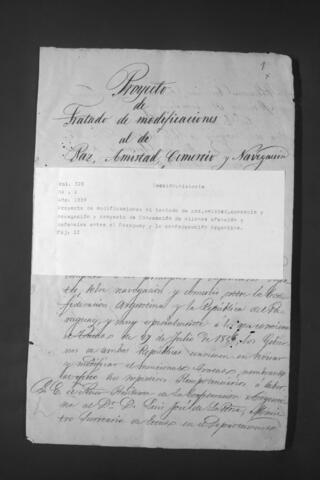 1
Proyecto
de
Tratado de modificaciones
al de
Paz, Amistad, Comercio y Navegacion
Vol. 328 Sección Historia
Nº : 2
Año: 1859
Proyecto de modificaciones al tratado de paz, amistad, comercio y
navegación y proyecto de Convención de alianza ofensiva y
defensiva entre el Paraguay y la confederación Argentina.
Fój: 12
te, sobre navegacion y comercio, entre la Con
federacion Argentina y la República del Pa
raguay, y muy especialmente á los que contiene
el tratado de 29 de Julio de 1856, los Gobier
nos de ambas Repúblicas convienen en revisar
y modificar el mencionado tratado, nombrando
al efecto sus respectivos Plenipotenciarios á saber,
S. E. el Señor Presidente de la Confederacion Argenti
na al Dr. D. Luis José de la Peña, Minis
tro Secretario de Estado en el Departamento